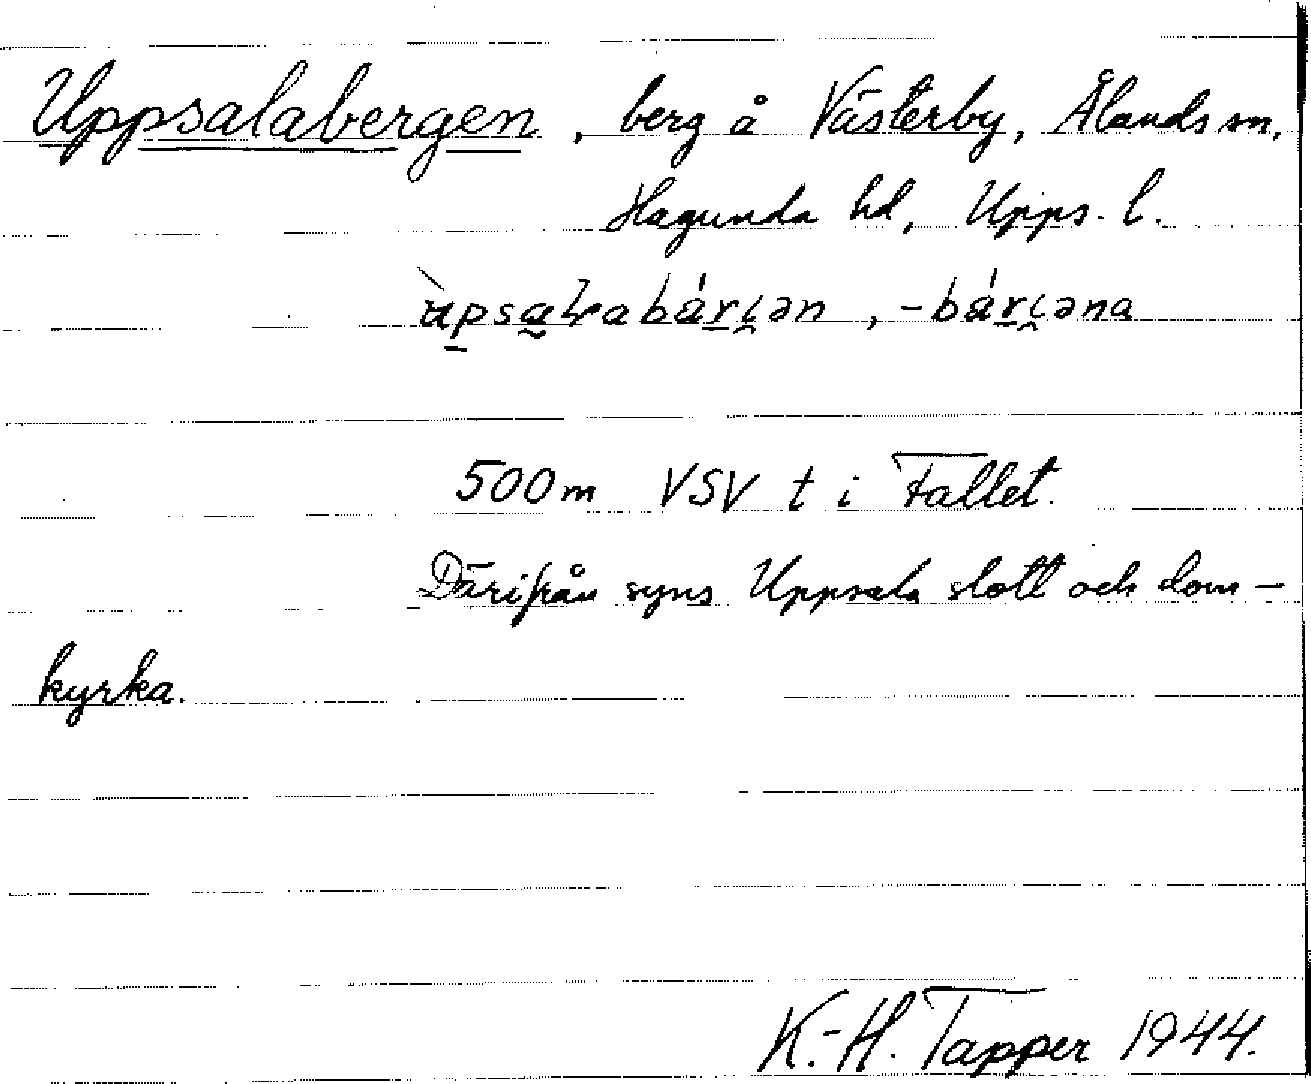 Uppsalabergen, berg å Västerby, Ålands sn,
Hagunda hd, Upps. l.
500m VSV t i Fallet.
Därifrån syns Uppsala slott och dom-
kyrka.
K.-H. Tapper 1944.